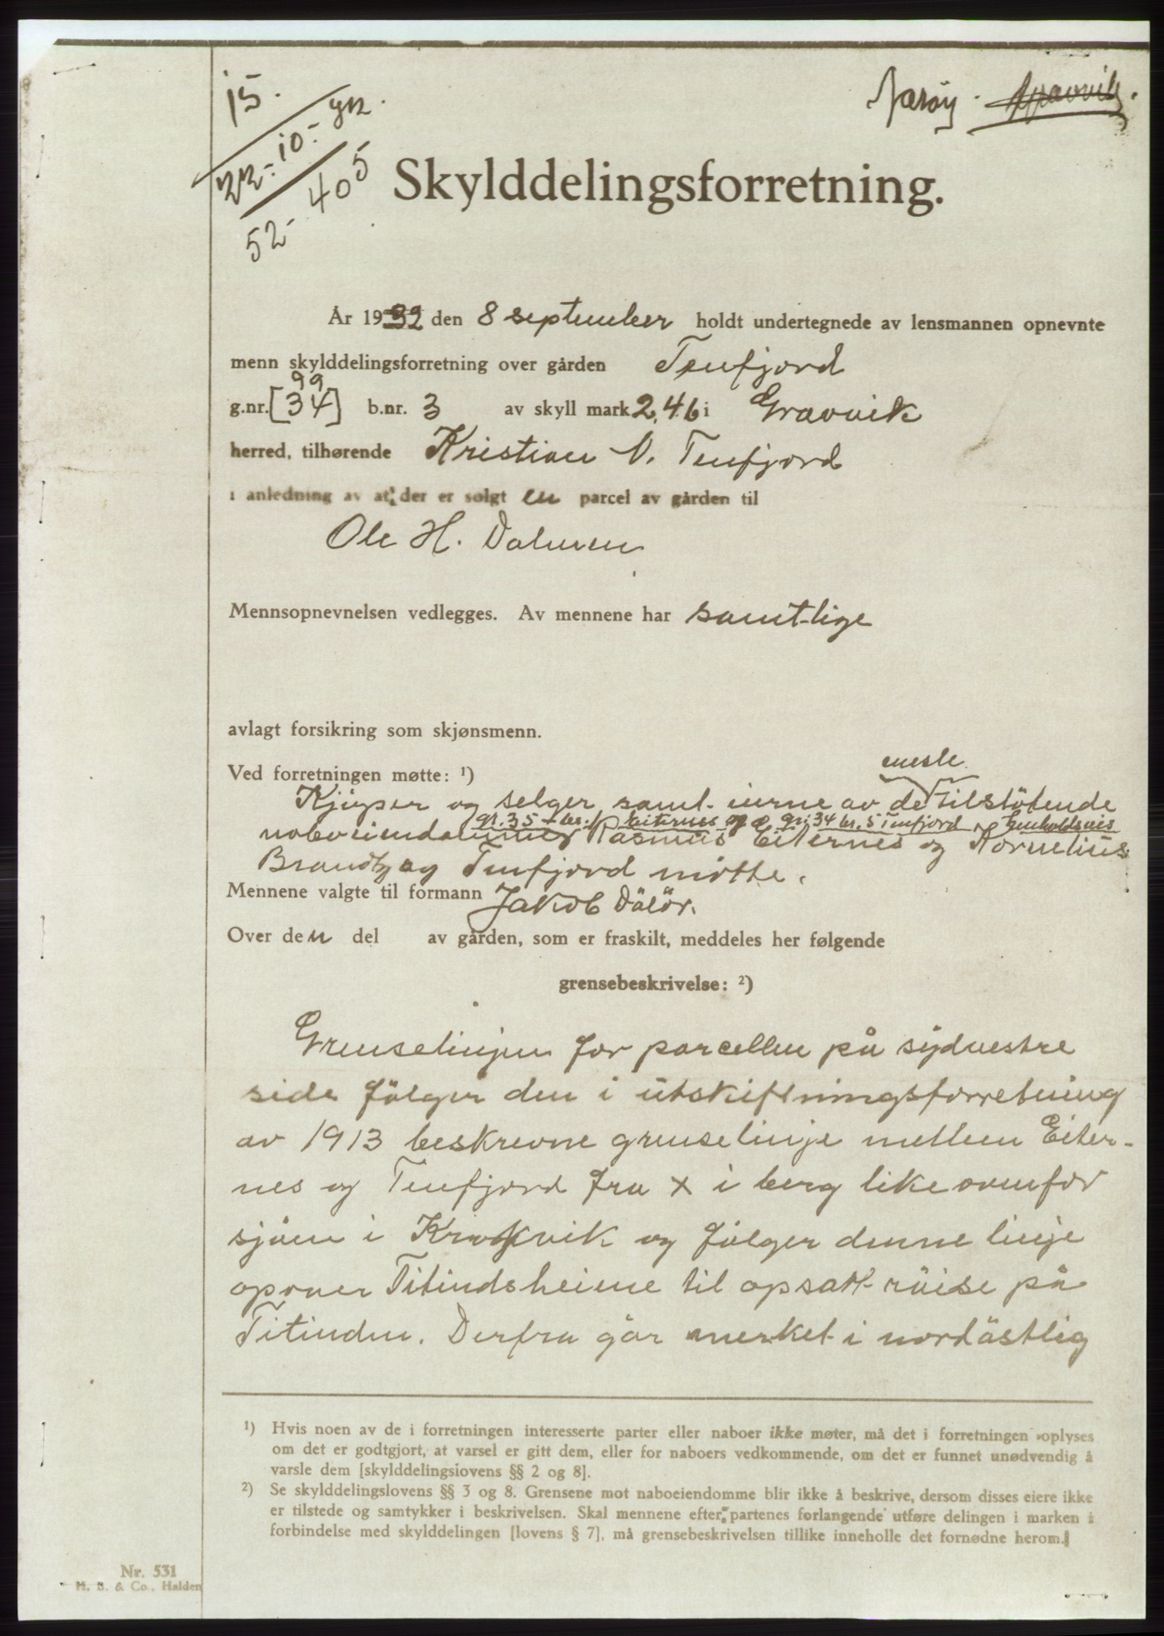 15.
22-10-32.
52-405
Nærøy. Gravvik.
Skylddelingsforretning.
År 1932 den 8 september holdt undertegnede av lensmannen opnevnte
menn skylddelingsforretning over gården Tenfjord
99
g.nr. [34] b.nr. 3 av skyll mark 2,46 i Gravvik
herred, tilhørende Kristian N. Tenfjord
i anledning av at der er solgt en parcel av gården til
Ole H. Dalmen
Mennsopnevnelsen vedlegges. Av mennene har samtlige
avlagt forsikring som skjønsmenn.
Ved forretningen møtte: ¹)
eneste
Kjøper og selger samt eierne av de tilstötende
gr. 35 br. 1 Eiternes og gr. 34 br. 5 Tenfjord henholdsvis
naboeiendommer Rasmus Eiternes og Kornelius
Brandtzæg Tenfjord møtte.
Mennene valgte til formann Jakob Dåör.
Over den del av gården, som er fraskilt, meddeles her følgende
grensebeskrivelse: ²)
Grenselinjen for parcellen på sydvestre
side fölger den i utskiftningsforretning
av 1913 beskrevne grenselinje mellem Eiter-
nes og Tenfjord fra x i berg like ovenfor
sjöen i Krokvik og fölger denne linje
opover Titindsheiene til opsatt röise på
Titinden. Derfra går merket i nordöstlig
¹) Hvis noen av de i forretningen interesserte parter eller naboer ikke møter, må det i forretningen oplyses
om det er godtgjort, at varsel er gitt dem, eller for naboers vedkommende, om det er funnet unødvendig å
varsle dem [skylddelingslovens §§ 2 og 8].
²) Se skylddelingslovens §§ 3 og 8. Grensene mot naboeiendomme blir ikke å beskrive, dersom disses eiere ikke
er tilstede og samtykker i beskrivelsen. Skal mennene efter partenes forlangende utføre delingen i marken i
forbindelse med skylddelingen [lovens § 7], må grensebeskrivelsen tillike inneholle det fornødne herom.
Nr. 531
M. B. & Co., Halden